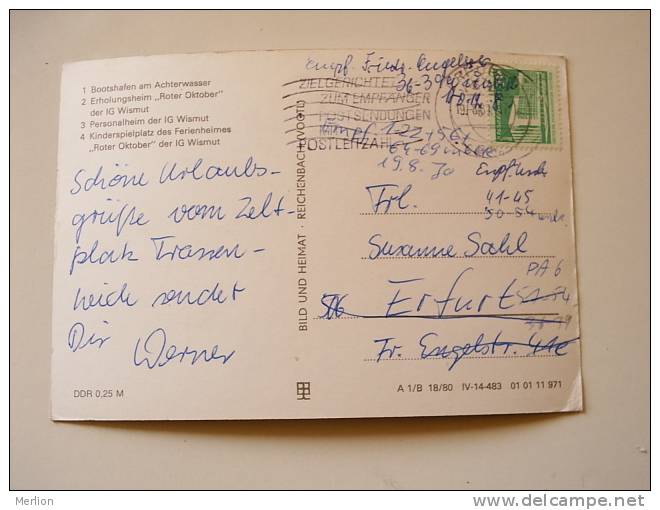 1 Bootshafen am Achterwasser
2 Erholungsheim „Roter Oktober"
der IG Wismut
3 Personalheim der IG Wismut
4 Kinderspielplatz des Ferienheimes
„Roter Oktober" der IG Wismut
Schöne Urlaubs-
grüße vom Zelt-
platz Trassen-
heide sendet
Dir Werner
DDR 0,25 M
BILD UND HEIMAT · REICHENBACH (VOGTL)
Empf. Friedr. Engelsstr.
36-39
ZIELGERICHTET
ZUM EMPFÄNGER
POSTSENDUNGEN
MIT
POSTLEITZAHL
Empf. 122 + 56
64-69
19.8.
Frl.
41-45
50-54
Susanne Sahl
PA 6
Erfurt
Fr. Engelstr. 41c
A 1/B 18/80 IV-14-483 01 01 11 971
Merlion
www.delcampe.net